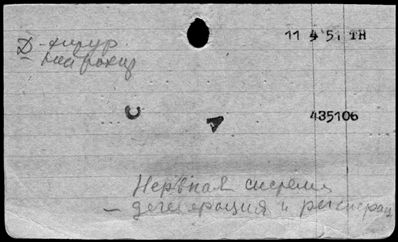 Д-хирур.
11 4 5 1 TH
435106
Нервная система
— дегенерация и регенерац